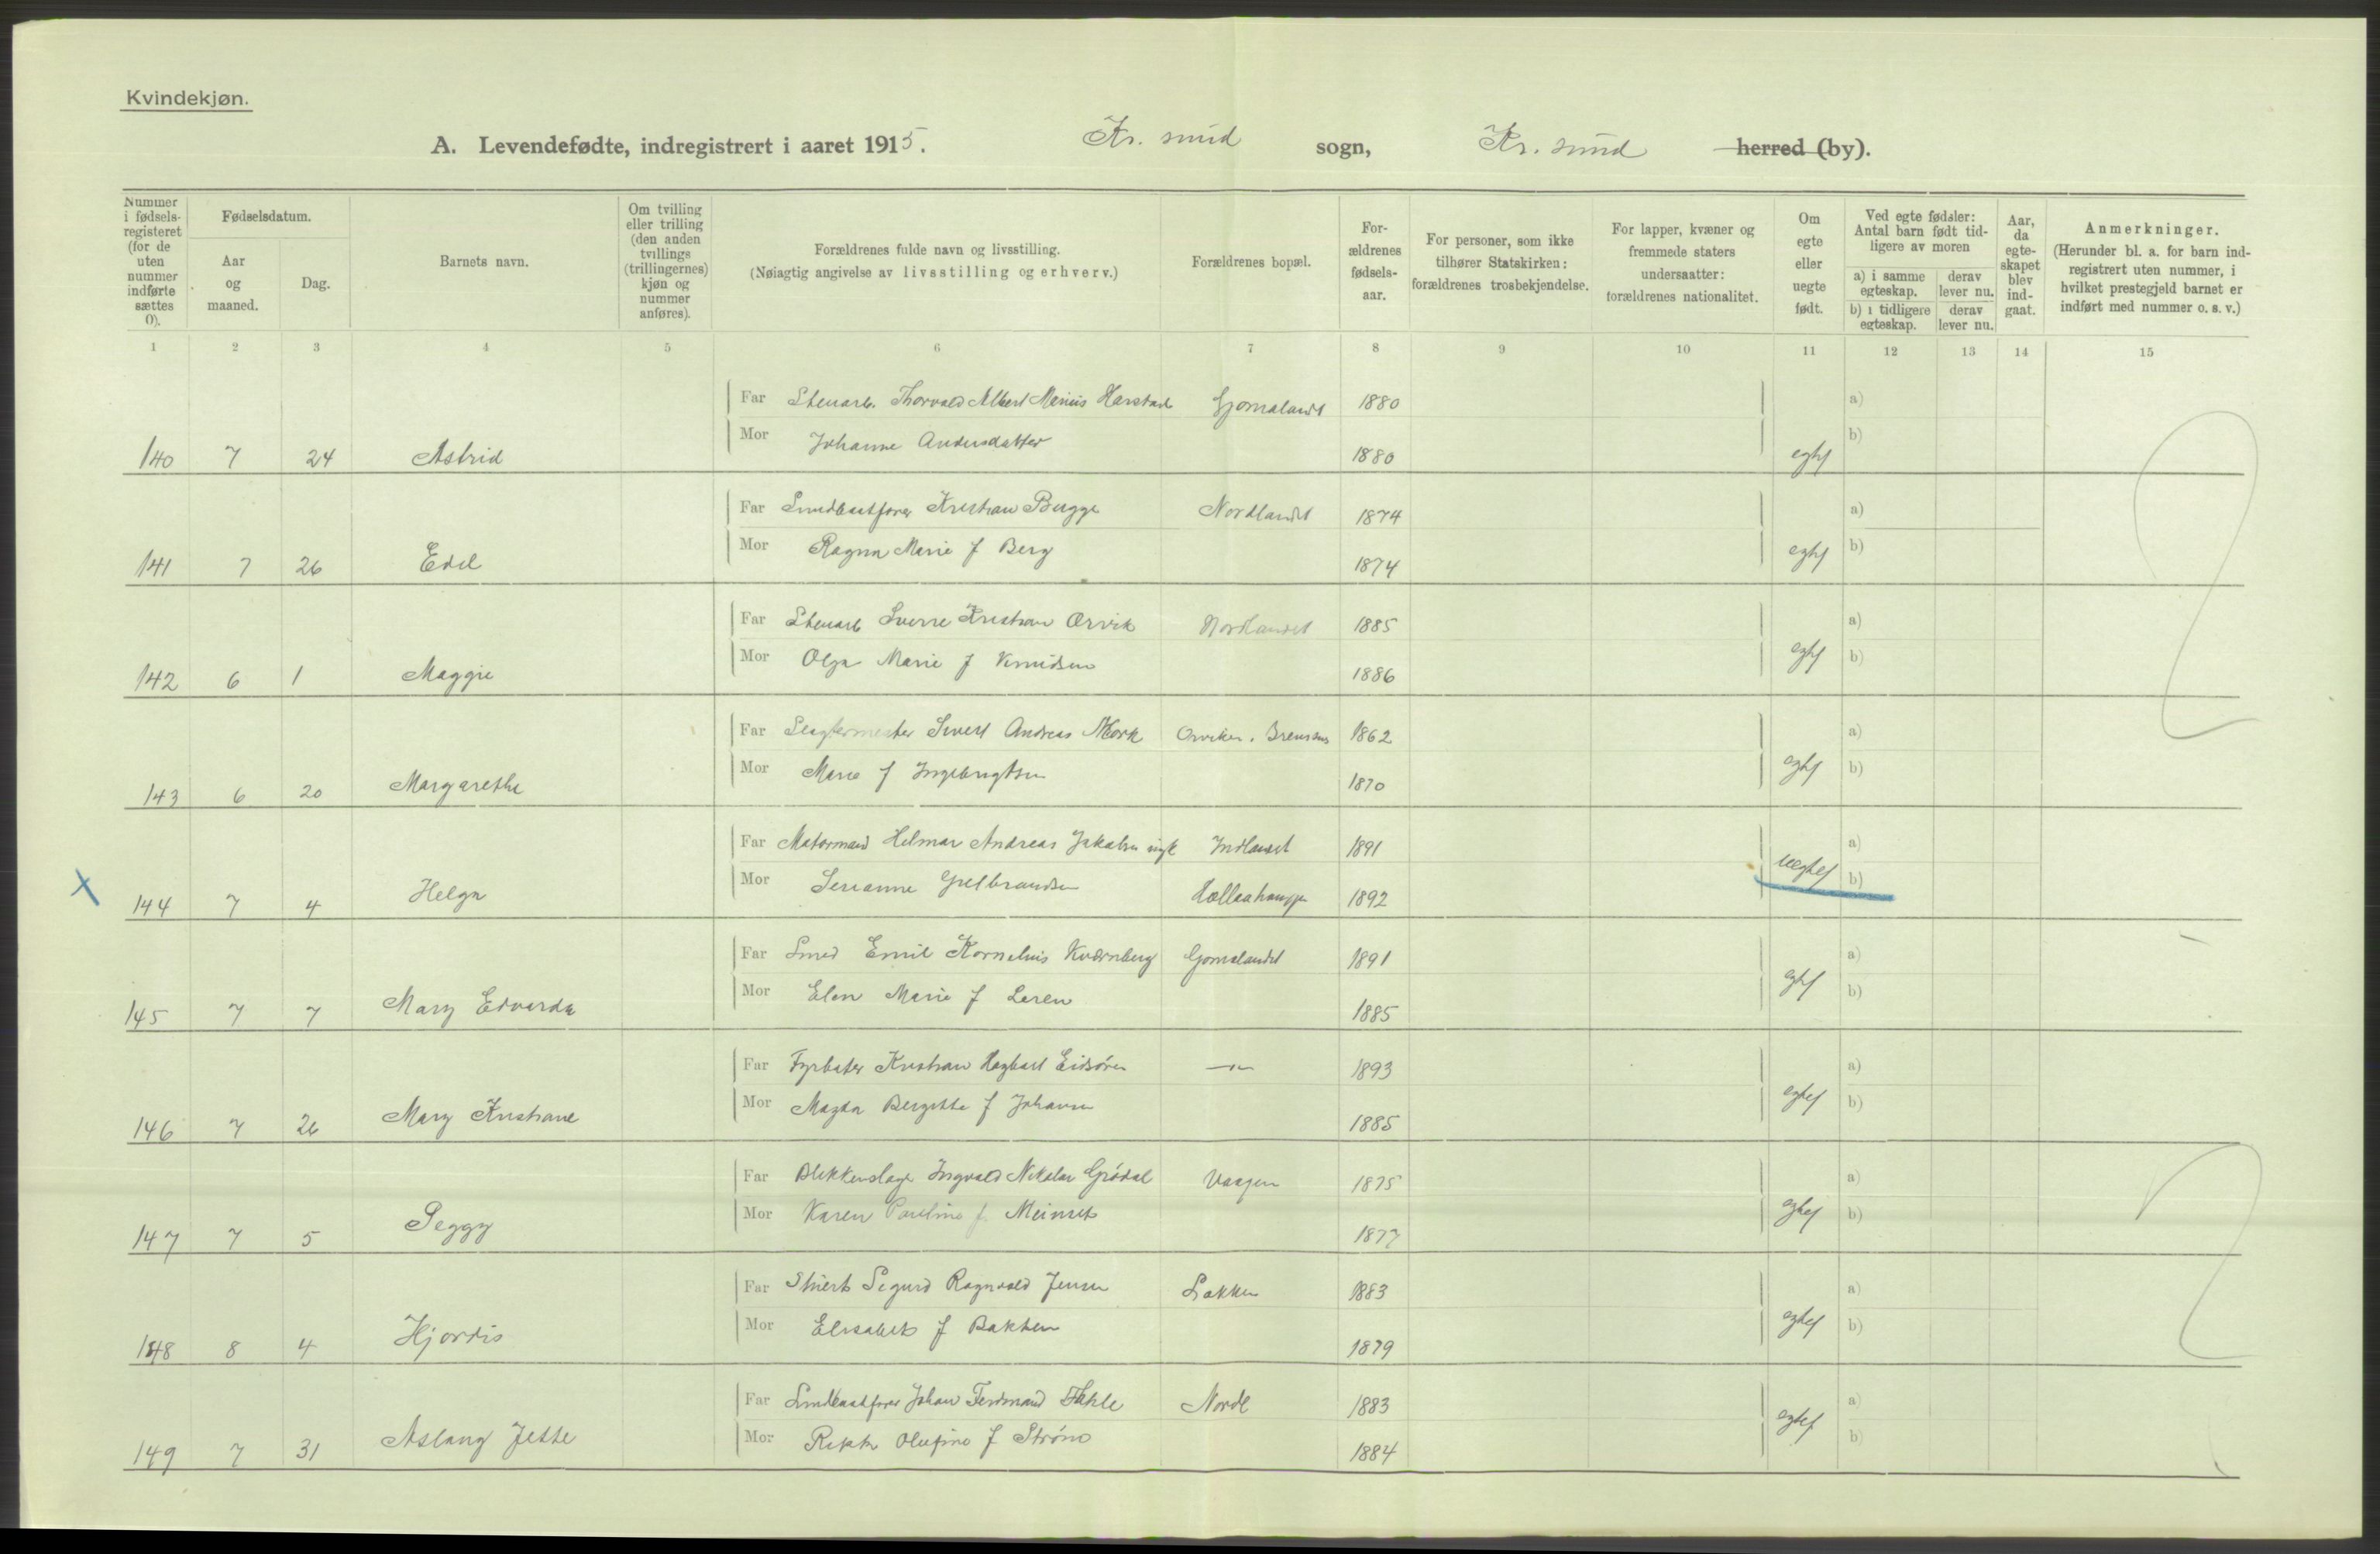 Kvindekjøn.
A. Levendefødte, indregistrert i aaret 1915. Kr. sund sogn, Kr. sund herred (by).
Nummer i fødsels-registeret (for de uten nummer indførte sættes 0).
Fødselsdatum.
Aar og maaned.
Dag.
Barnets navn.
Om tvilling eller trilling (den anden tvillings (trillingernes) kjøn og nummer anføres).
Forældrenes fulde navn og livsstilling.
(Nøiagtig angivelse av livsstilling og erhverv.)
Forældrenes bopæl.
For-ældrenes fødsels-aar.
For personer, som ikke tilhører Statskirken: forældrenes trosbekjendelse.
For lapper, kvæner og fremmede staters undersaatter: forældrenes nationalitet.
Om egte eller uegte født.
Ved egte fødsler: Antal barn født tid-ligere av moren
a) i samme egteskap.
derav lever nu.
b) i tidligere egteskap.
derav lever nu.
Aar, da egte-skapet blev ind-gaat.
Anmerkninger.
(Herunder bl. a. for barn ind-registrert uten nummer, i hvilket prestegjeld barnet er indført med nummer o. s. v.)
1 2 3 4 5 6 7 8 9 10 11 12 13 14 15
Far Stenarb. Thorvald Albert Marius Harstad Gomalandt 1880 a)
Mor Johanne Andersdatter b)
140 7 24 Astrid 1880 egte
Far Kristian Bugge Nordlandet 1874 a)
Mor Ragna Marie f Berg b)
141 7 26 Edel 1874 egte
Far Stenarb Sverre Kristian Orvik Nordlandet 1885 a)
Mor Olga Marie f Knudsen b)
142 6 1 Maggie 1886 egte
Far Sivert Andreas Mork 1862 a)
Mor Marie f Ingebrigtsen b)
143 6 20 Margarethe 1870 egte
Far Matormand Helmar Andreas Jakobsen Indlandet 1891 a)
Mor b)
144 7 4 Helga 1892 uegte
Far Smed Emil Kornelius Kvernberg Gomalandet 1891 a)
Mor Elen Marie f Leren b)
145 7 7 Mary Edvarda 1885 egte
Far Fyrbøter Kristian Hagbart Eidsøren 1893 a)
Mor Magda Bergitte f Johansen b)
146 7 26 Mary Kristiane 1885 egte
Far Blikkenslager Ingvald Nikolai Grødal Vaagen 1875 a)
Mor Karen Pauline f. Meinset b)
147 7 5 Peggy 1877 egte
Far Sigurd Ragnvald Jensen 1883 a)
Mor Elisabet f Bakken b)
148 8 4 Hjordis 1879 egte
Far Johan Ferdinand Nordl 1883 a)
Mor Olufine f Strøm b)
149 7 31 Aslaug Jette 1884 egte